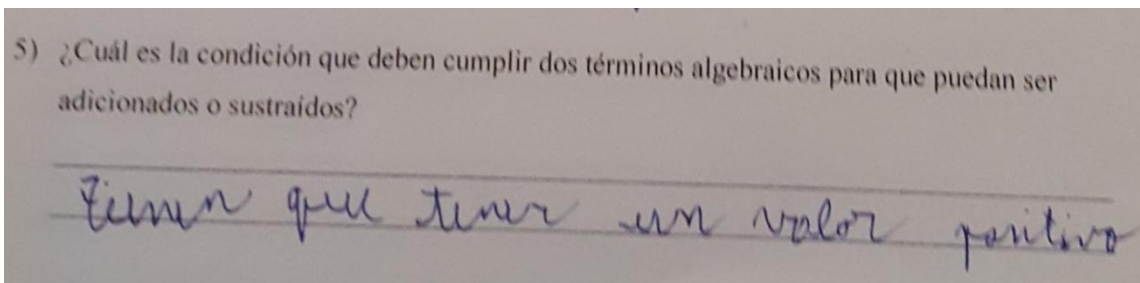 5) ¿Cuál es la condición que deben cumplir dos términos algebraicos para que puedan ser
adicionados o sustraídos?
tienen que tener un valor positivo